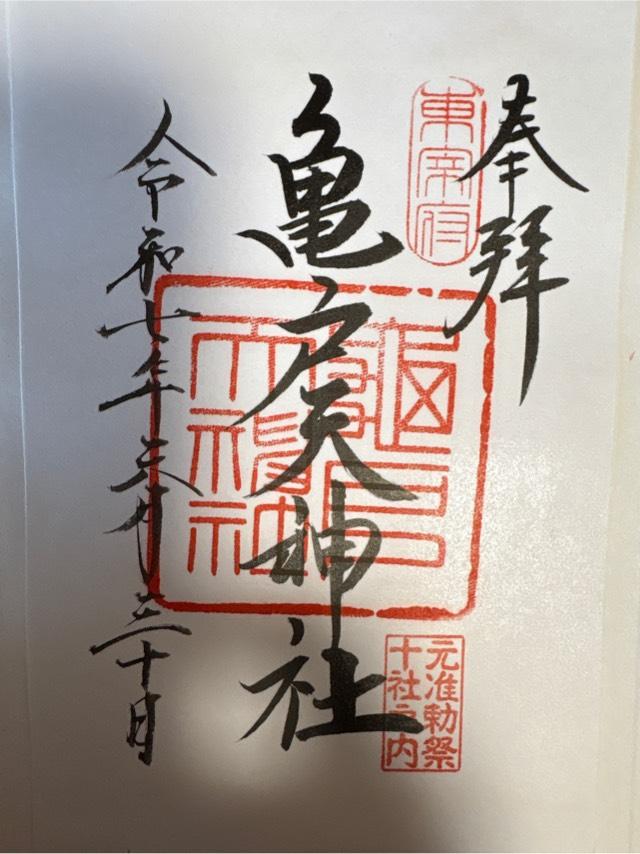 奉拝
東宰府
亀戸天神社
元准勅祭
十社之内
令和七年三月三十日